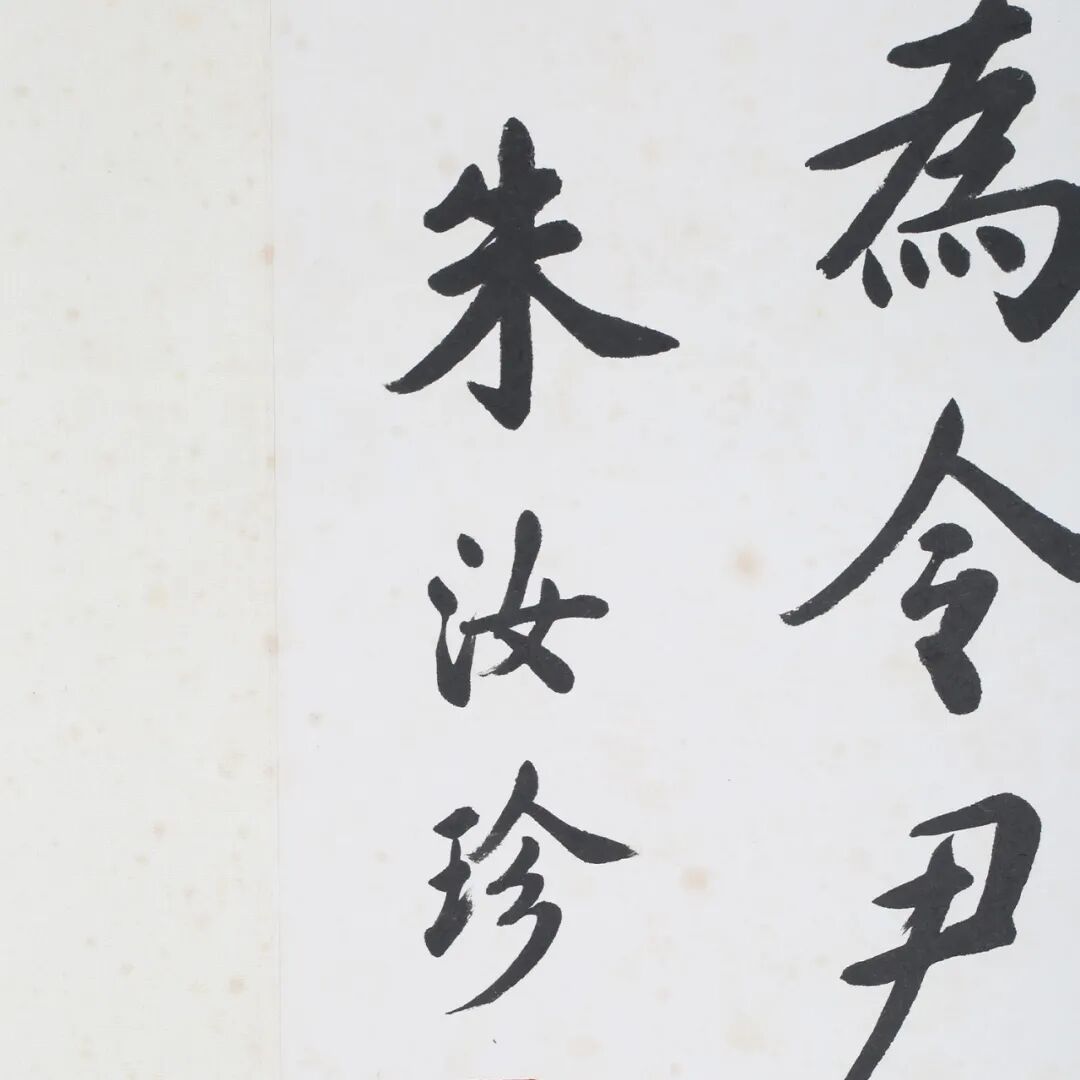 為令尹
朱汝珍